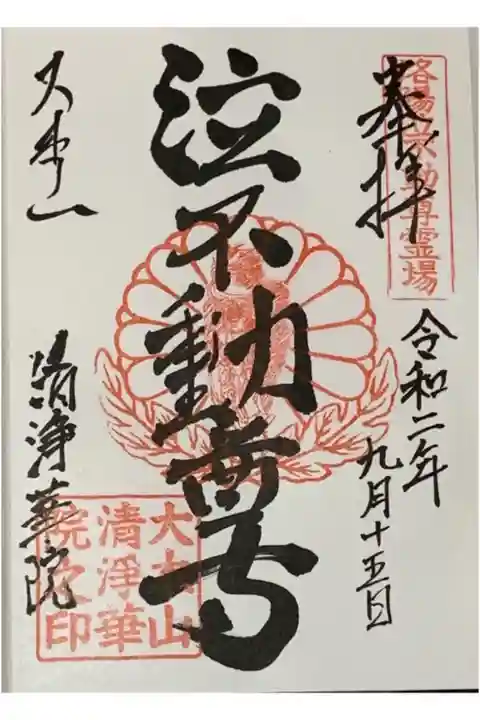 洛陽不動尊霊場
奉拝
令和二年
九月十五日
泣不動尊
大本山
清浄華院
大本山
清淨華
院之印